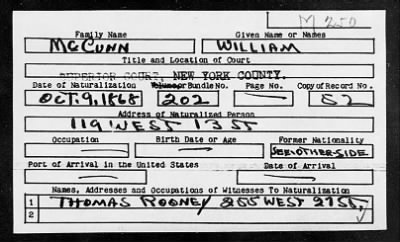 M 250
Family Name Given Name or Names
McCUNN WILLIAM
Title and Location of Court
SUPERIOR COURT, NEW YORK COUNTY.
Date of Naturalization Volume or Bundle No. Page No. Copy of Record No.
OCT. 9, 1868 202 — 52
Address of Naturalized Person
119 WEST 13 ST
Occupation Birth Date or Age Former Nationality
— — SEE OTHER-SIDE
Port of Arrival in the United States Date of Arrival
— —
Names, Addresses and Occupations of Witnesses To Naturalization
1 THOMAS ROONEY 255 WEST 27 ST.
2